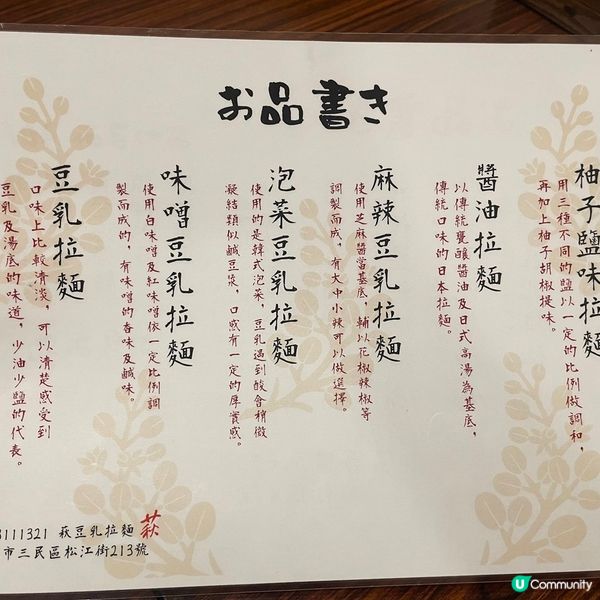 お品書き
柚子鹽味拉麵
用三種不同的鹽以一定的比例做調和，
再加上柚子胡椒提味。
醬油拉麵
以傳統甕釀醬油及日式高湯為基底，
傳統口味的日本拉麵。
麻辣豆乳拉麵
使用芝麻醬當基底，輔以花椒辣椒等
調製而成，有大中小辣可以做選擇。
泡菜豆乳拉麵
使用的是韓式泡菜，豆乳遇到酸會稍微
凝結類似鹹豆漿，口感有一定的厚實感。
味噌豆乳拉麵
使用白味噌及紅味噌依一定比例調
製而成的，有味噌的香味及鹹味。
豆乳拉麵
口味上比較清淡，可以清楚感受到
豆乳及湯底的味道，少油少鹽的代表。
3111321 萩豆乳拉麵 萩
市三民區松江街213號
U Community